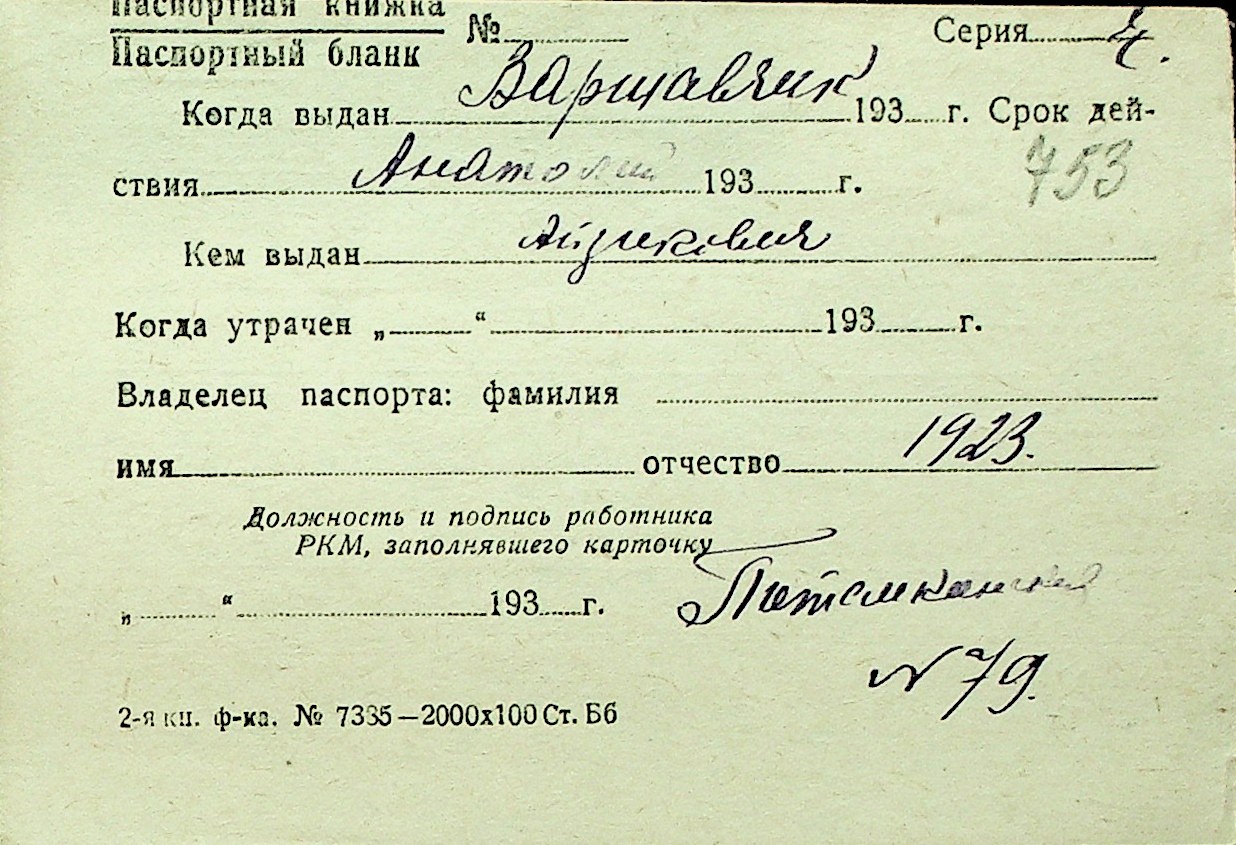 Паспортная книжка
Паспортный бланк № Серия
Варшавчик
Когда выдан 193 г. Срок дей-
ствия Анатолий 193 г. 753
Кем выдан Айзикович
Когда утрачен „ “ 193 г.
Владелец паспорта: фамилия
имя отчество 1923.
Должность и подпись работника
РКМ, заполнявшего карточку
„ “ 193 г.
N 79.
2-я кн. ф-ка. № 7335—2000x100 Ст. Бб